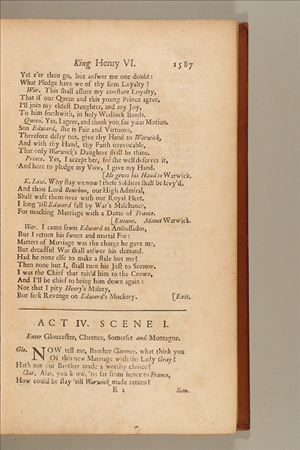 King Henry VI. 1587
Yet e'er thou go, but answer me one doubt:
What Pledge have we of thy firm Loyalty?
War. This shall assure my constant Loyalty,
That if our Queen and this young Prince agree,
I'll join my eldest Daughter, and my Joy,
To him forthwith, in holy Wedlock Bands.
Queen. Yes, I agree, and thank you for your Motion.
Son Edward, she is Fair and Virtuous,
Therefore delay not, give thy Hand to Warwick,
And with thy Hand, thy Faith irrevocable,
That only Warwick's Daughter shall be thine.
Prince. Yes, I accept her, for she well deserves it,
And here to pledge my Vow, I give my Hand.
[He gives his Hand to Warwick.
K. Lew. Why stay we now? these Soldiers shall be levy'd,
And thou Lord Bourbon, our High Admiral,
Shalt waft them over with our Royal Fleet.
I long 'till Edward fall by War's Mischance,
For mocking Marriage with a Dame of France.
[Exeunt. Manet Warwick.
War. I came from Edward as Ambassador,
But I return his sworn and mortal Foe:
Matters of Marriage was the charge he gave me,
But dreadful War shall answer his demand.
Had he none else to make a stale but me?
Then none but I, shall turn his Jest to Sorrow.
I was the Chief that rais'd him to the Crown,
And I'll be chief to bring him down again:
Not that I pity Henry's Misery,
But seek Revenge on Edward's Mockery. [Exit.
ACT IV. SCENE I.
Enter Gloucester, Clarence, Somerset and Montague.
Glo. NOW tell me, Brother Clarence, what think you
Of this new Marriage with the Lady Gray?
Hath not our Brother made a worthy choice?
Clar. Alas, you know, 'tis far from hence to France,
How could he stay 'till Warwick made return?
E 2 Som.